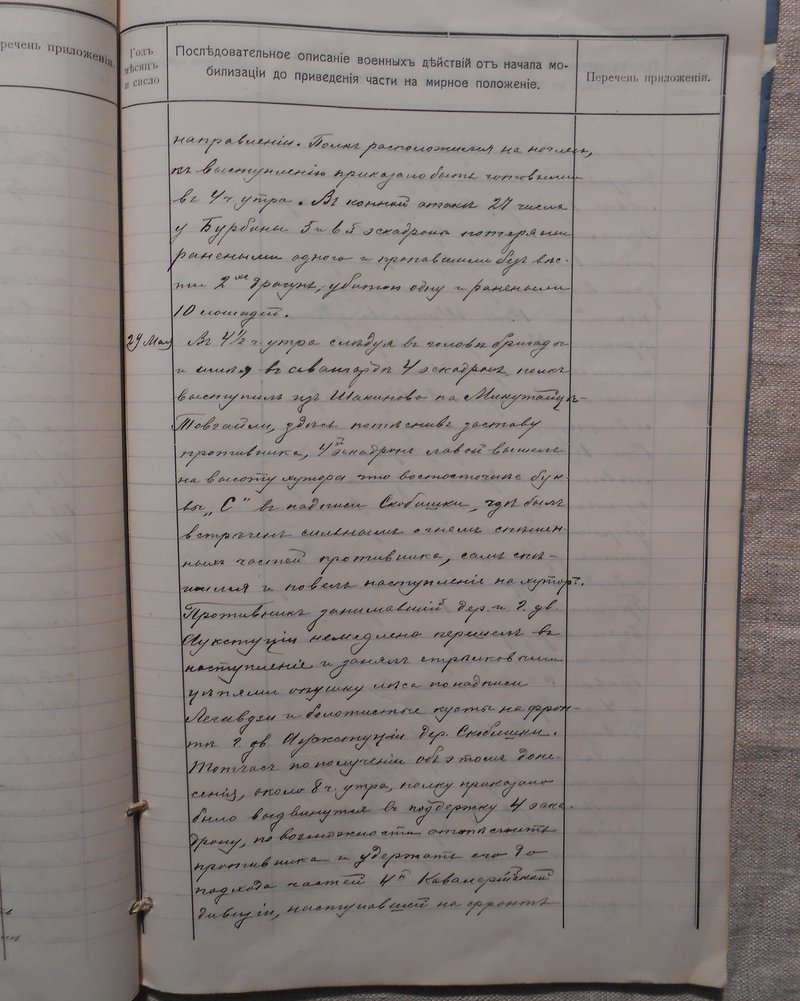 еречень приложеній.
Годъ
мѣсяцъ
и сисло
Послѣдовательное описаніе военныхъ дѣйствій отъ начала мо-
билизаціи до приведенія части на мирное положеніе.
Перечень приложеній.
направленіи. Полкъ расположился на ночлегъ,
къ выступленію приказано быть готовыми
въ 4 ч утра. Въ конной атакѣ 27 числа
у Бурбины 5 и 6й эскадроны потеряли
ранеными одного и пропавшими безъ вѣс-
ти 2хъ драгунъ, убитою одну и ранеными
10 лошадей.
29 Мая
Въ 4½ ч. утра слѣдуя въ головѣ бригады
и имѣя въ авангардѣ 4 эскадронъ полкъ
выступилъ изъ Шакиново на
Товгайли, здѣсь потѣснивъ заставу
противника, 4й эскадронъ лавой вышелъ
на высоту хутора что восточнѣе бук-
вы „С" въ надписи Скобишки, гдѣ былъ
встрѣченъ сильнымъ огнемъ спѣшен-
ныхъ частей противника, самъ спѣ-
шился и повелъ наступленіе на хуторъ.
Противникъ занимавшій дер. и г. дв.
немедлено перешелъ въ
наступленіе и занялъ стрѣлковыми
цѣпями опушку лѣса по надписи
и болотистые кусты на фрон-
тѣ г. дв дер. Скобишки.
Тотчасъ по полученіи объ этомъ доне-
сенія, около 8 ч. утра, полку приказано
было выдвинутся въ поддержку 4 эска-
дрону, по возможности оттѣснить
противника и удержать его до
подхода частей 4й Кавалерійской
дивизіи, наступавшей на фронтъ